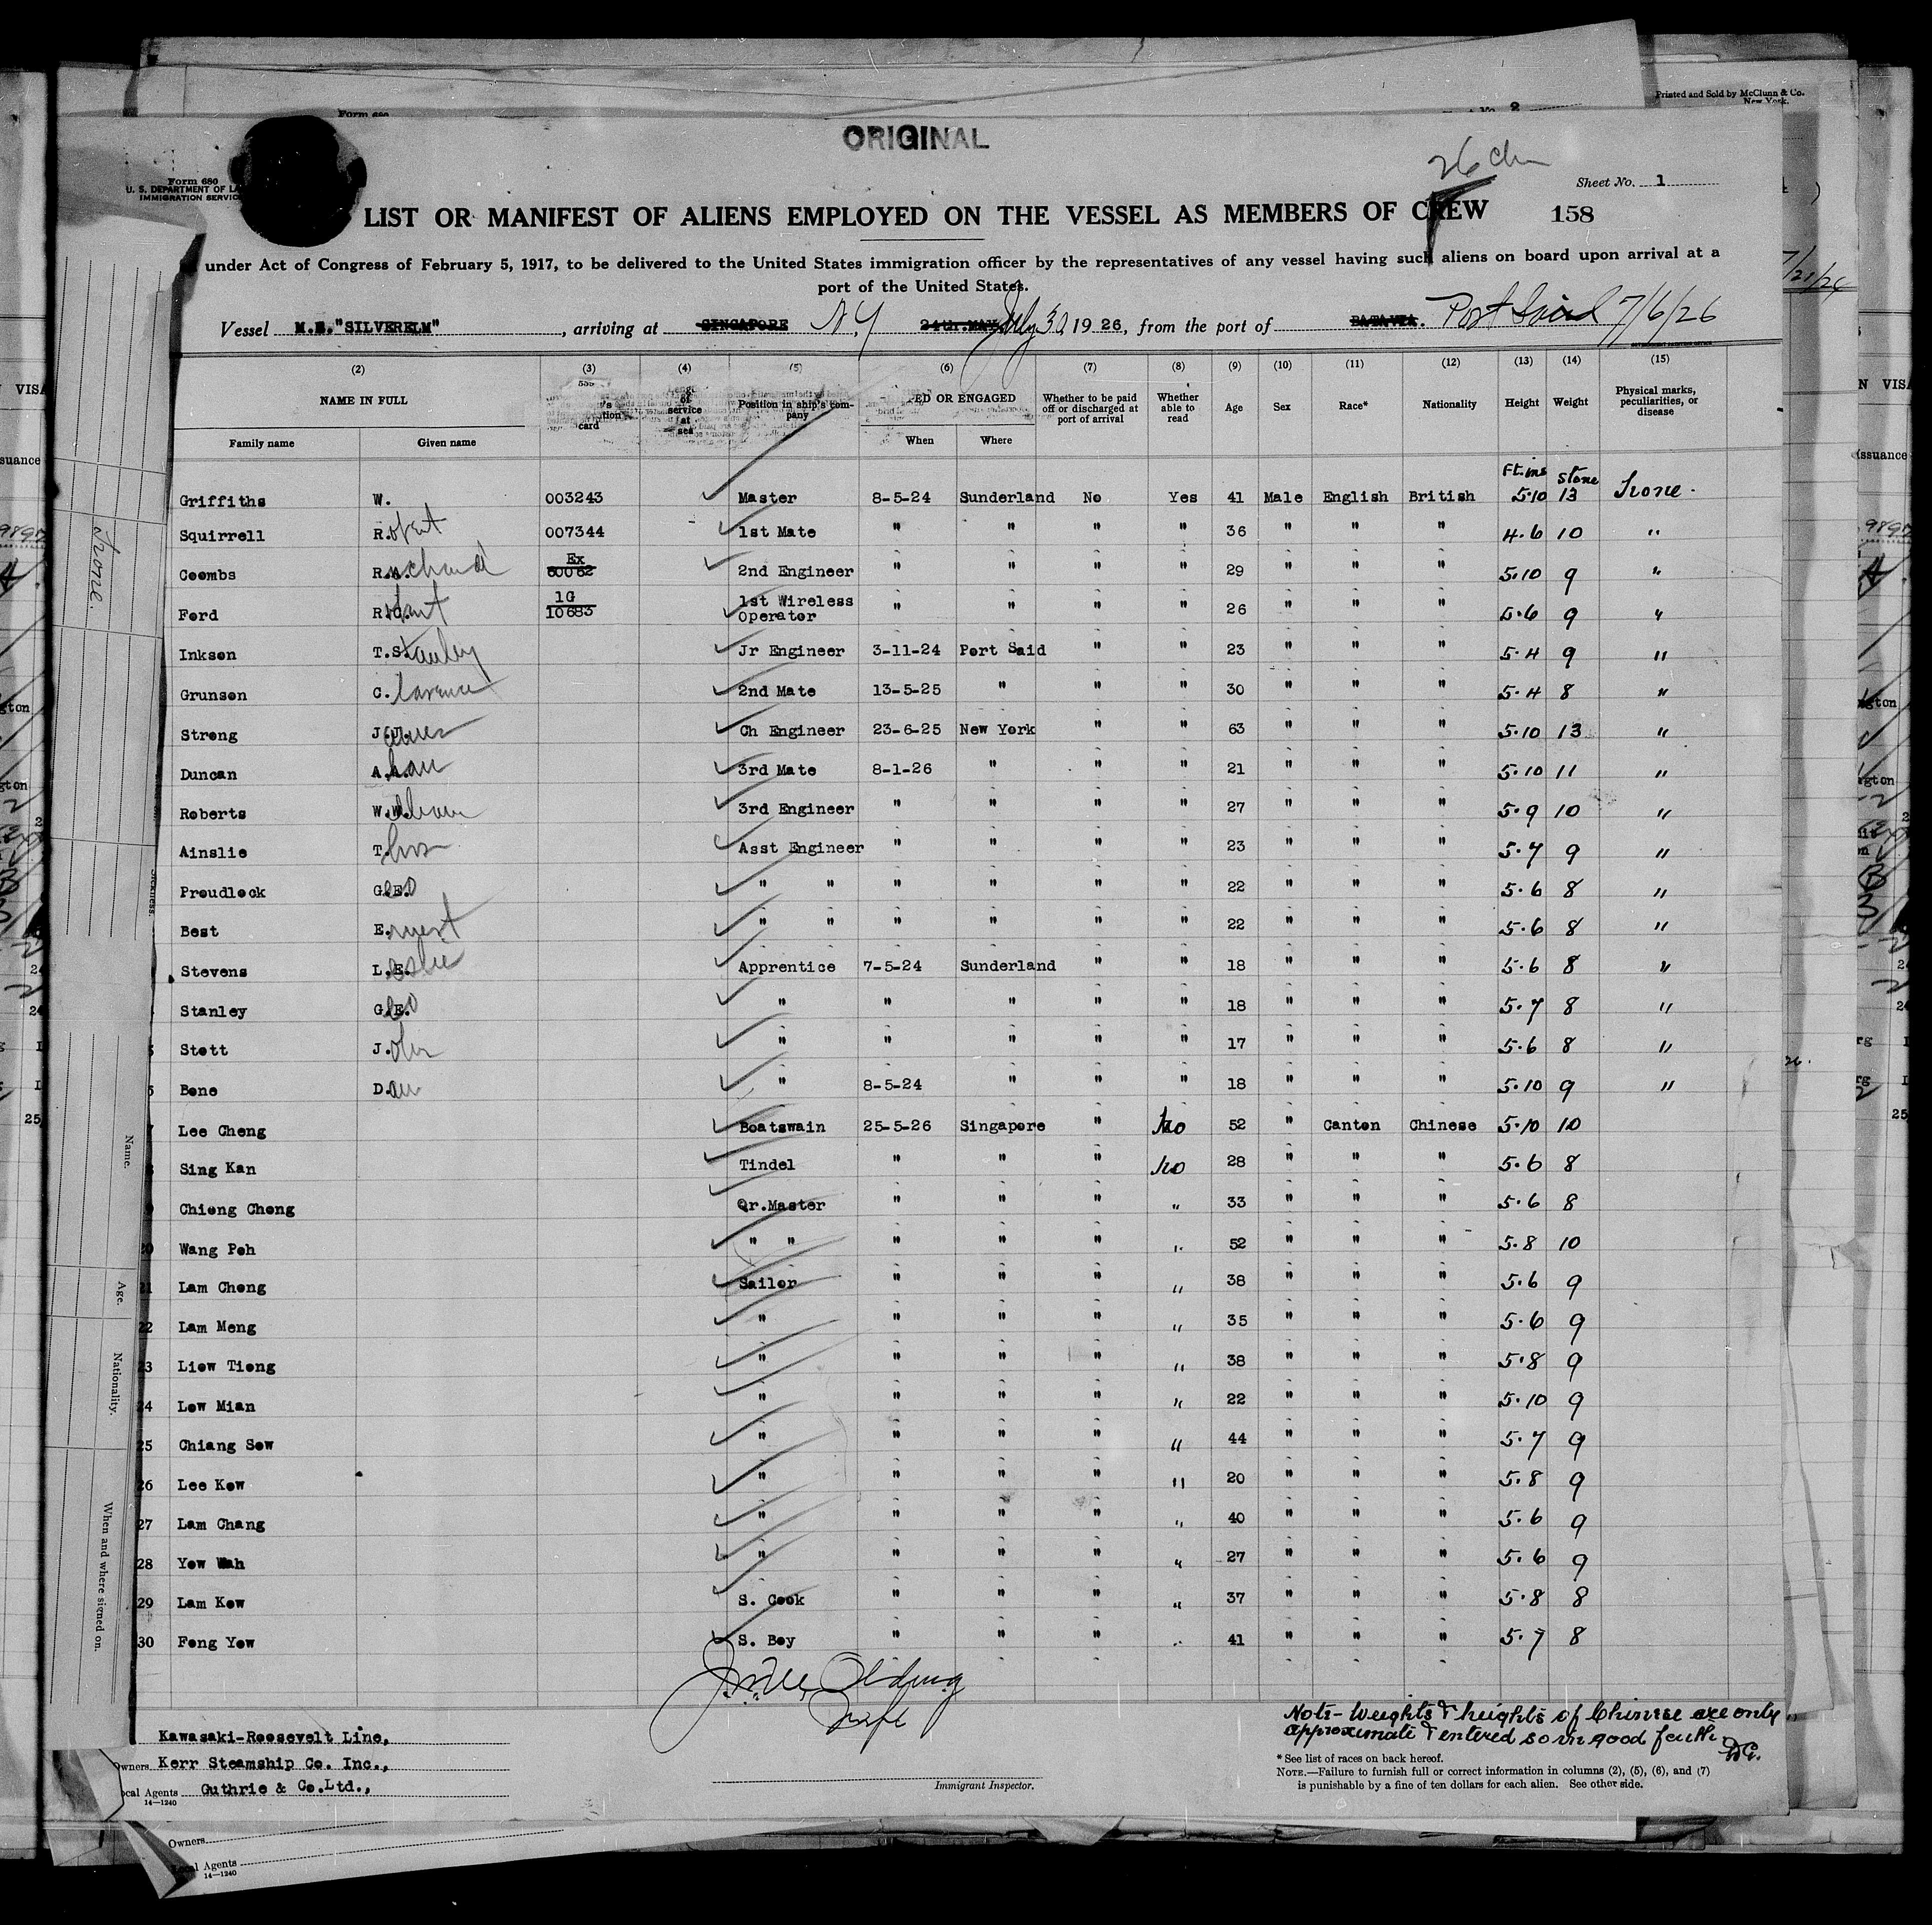 Printed and Sold by McClunn & Co.
New York.
ORIGINAL
Form 680
U. S. DEPARTMENT OF LA
IMMIGRATION SERVIC
Sheet No. 1
LIST OR MANIFEST OF ALIENS EMPLOYED ON THE VESSEL AS MEMBERS OF CREW 158
under Act of Congress of February 5, 1917, to be delivered to the United States immigration officer by the representatives of any vessel having such aliens on board upon arrival at a
port of the United States.
Vessel M.S."SILVERELM", arriving at SINGAPORE N.Y 24th.MAY July 30 1926, from the port of BATAVIA. Port Said 7/6/26
(2) (3) (4) (5) (6) (7) (8) (9) (10) (11) (12) (13) (14) (15)
NAME IN FULL
Family name Given name
card
service at sea
Position in ship's company
ED OR ENGAGED
When Where
Whether to be paid off or discharged at port of arrival
Whether able to read
Age Sex Race* Nationality Height Weight
Physical marks, peculiarities, or disease
Ft. ins Stone
Griffiths W. 003243 Master 8-5-24 Sunderland No Yes 41 Male English British 5·10 13 None.
Squirrell R.obert 007344 1st Mate " " " " 36 " " " 4·6 10 "
Coombs R.A. Ex 60062 2nd Engineer " " " " 29 " " " 5·10 9 "
Ford R.C. 1G 10683 1st Wireless Operator " " " " 26 " " " 5·6 9 "
Inkson T.Stanley Jr Engineer 3-11-24 Port Said " " 23 " " " 5·4 9 "
Grunson C.larence 2nd Mate 13-5-25 " " " 30 " " " 5·4 8 "
Strong J.J.ames Ch Engineer 23-6-25 New York " " 63 " " " 5·10 13 "
Duncan A.A. 3rd Mate 8-1-26 " " " 21 " " " 5·10 11 "
Roberts W.W. 3rd Engineer " " " " 27 " " " 5·9 10 "
Ainslie T.hos Asst Engineer " " " " 23 " " " 5·7 9 "
Proudlock G.E. " " " " " " 22 " " " 5·6 8 "
Best E.rnest " " " " " " 22 " " " 5·6 8 "
Stevens L.E. eslie Apprentice 7-5-24 Sunderland " " 18 " " " 5·6 8 "
Stanley G.E. " " " " " 18 " " " 5·7 8 "
Stott J.ohn " " " " " 17 " " " 5·6 8 "
Bone D.an " 8-5-24 " " " 18 " " " 5·10 9 "
Lee Cheng Boatswain 25-5-26 Singapore " No 52 " Canton Chinese 5·10 10
Sing Kan Tindel " " " No 28 " " " 5·6 8
Chieng Chong Qr.Master " " " " 33 " " " 5·6 8
20 Wang Poh " " " " " " 52 " " " 5·8 10
21 Lam Chong Sailor " " " " 38 " " " 5·6 9
22 Lam Meng " " " " " 35 " " " 5·6 9
23 Liow Tiong " " " " " 38 " " " 5·8 9
24 Low Mian " " " " " 22 " " " 5·10 9
25 Chiang Sow " " " " " 44 " " " 5·7 9
26 Lee Kow " " " " " 20 " " " 5·8 9
27 Lam Chang " " " " " 40 " " " 5·6 9
28 Yow Wah " " " " " 27 " " " 5·6 9
29 Lam Kow S. Cook " " " " 37 " " " 5·8 8
30 Fong Yow S. Boy " " " " 41 " " " 5·7 8
Kawasaki-Roosevelt Line,
Owners Kerr Steamship Co. Inc.,
ocal Agents Guthrie & Co.Ltd.,
14—1240
Immigrant Inspector.
Note- Weights & heights of Chinese are only
approximate & entered so in good faith.
* See list of races on back hereof.
NOTE.—Failure to furnish full or correct information in columns (2), (5), (6), and (7)
is punishable by a fine of ten dollars for each alien. See other side.
Owners
Local Agents
14—1240
None.
Name.
Age.
Nationality.
When and where signed on.